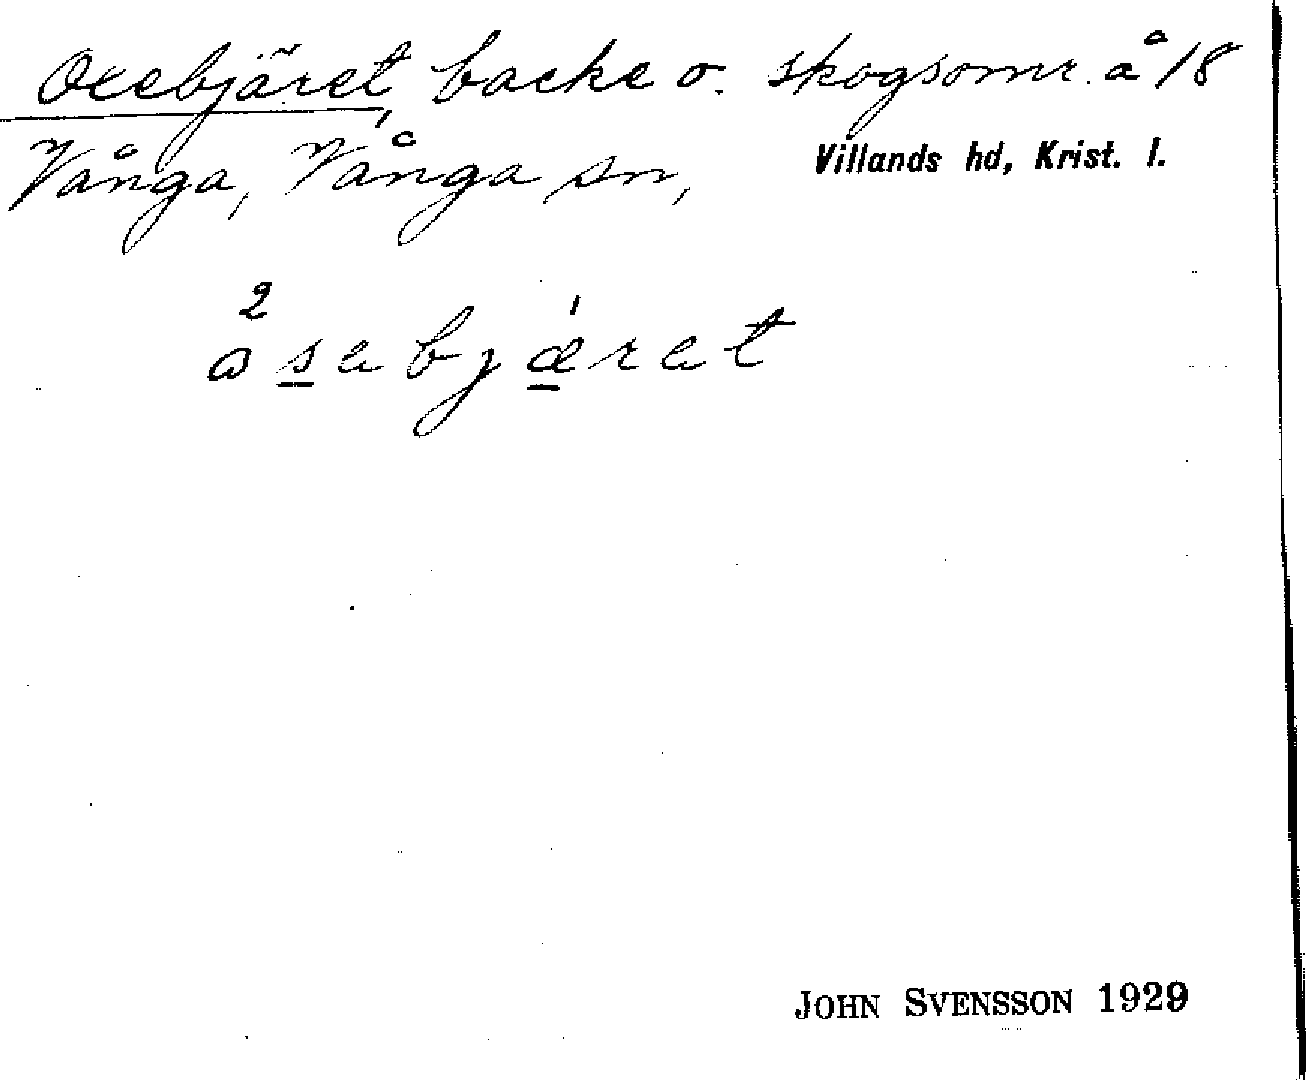 Oxebjäret, backe o. skogsomr. å 18
Vånga, Vånga sn, Villands hd, Krist. l.
2
åsebjæ´ret
JOHN SVENSSON 1929